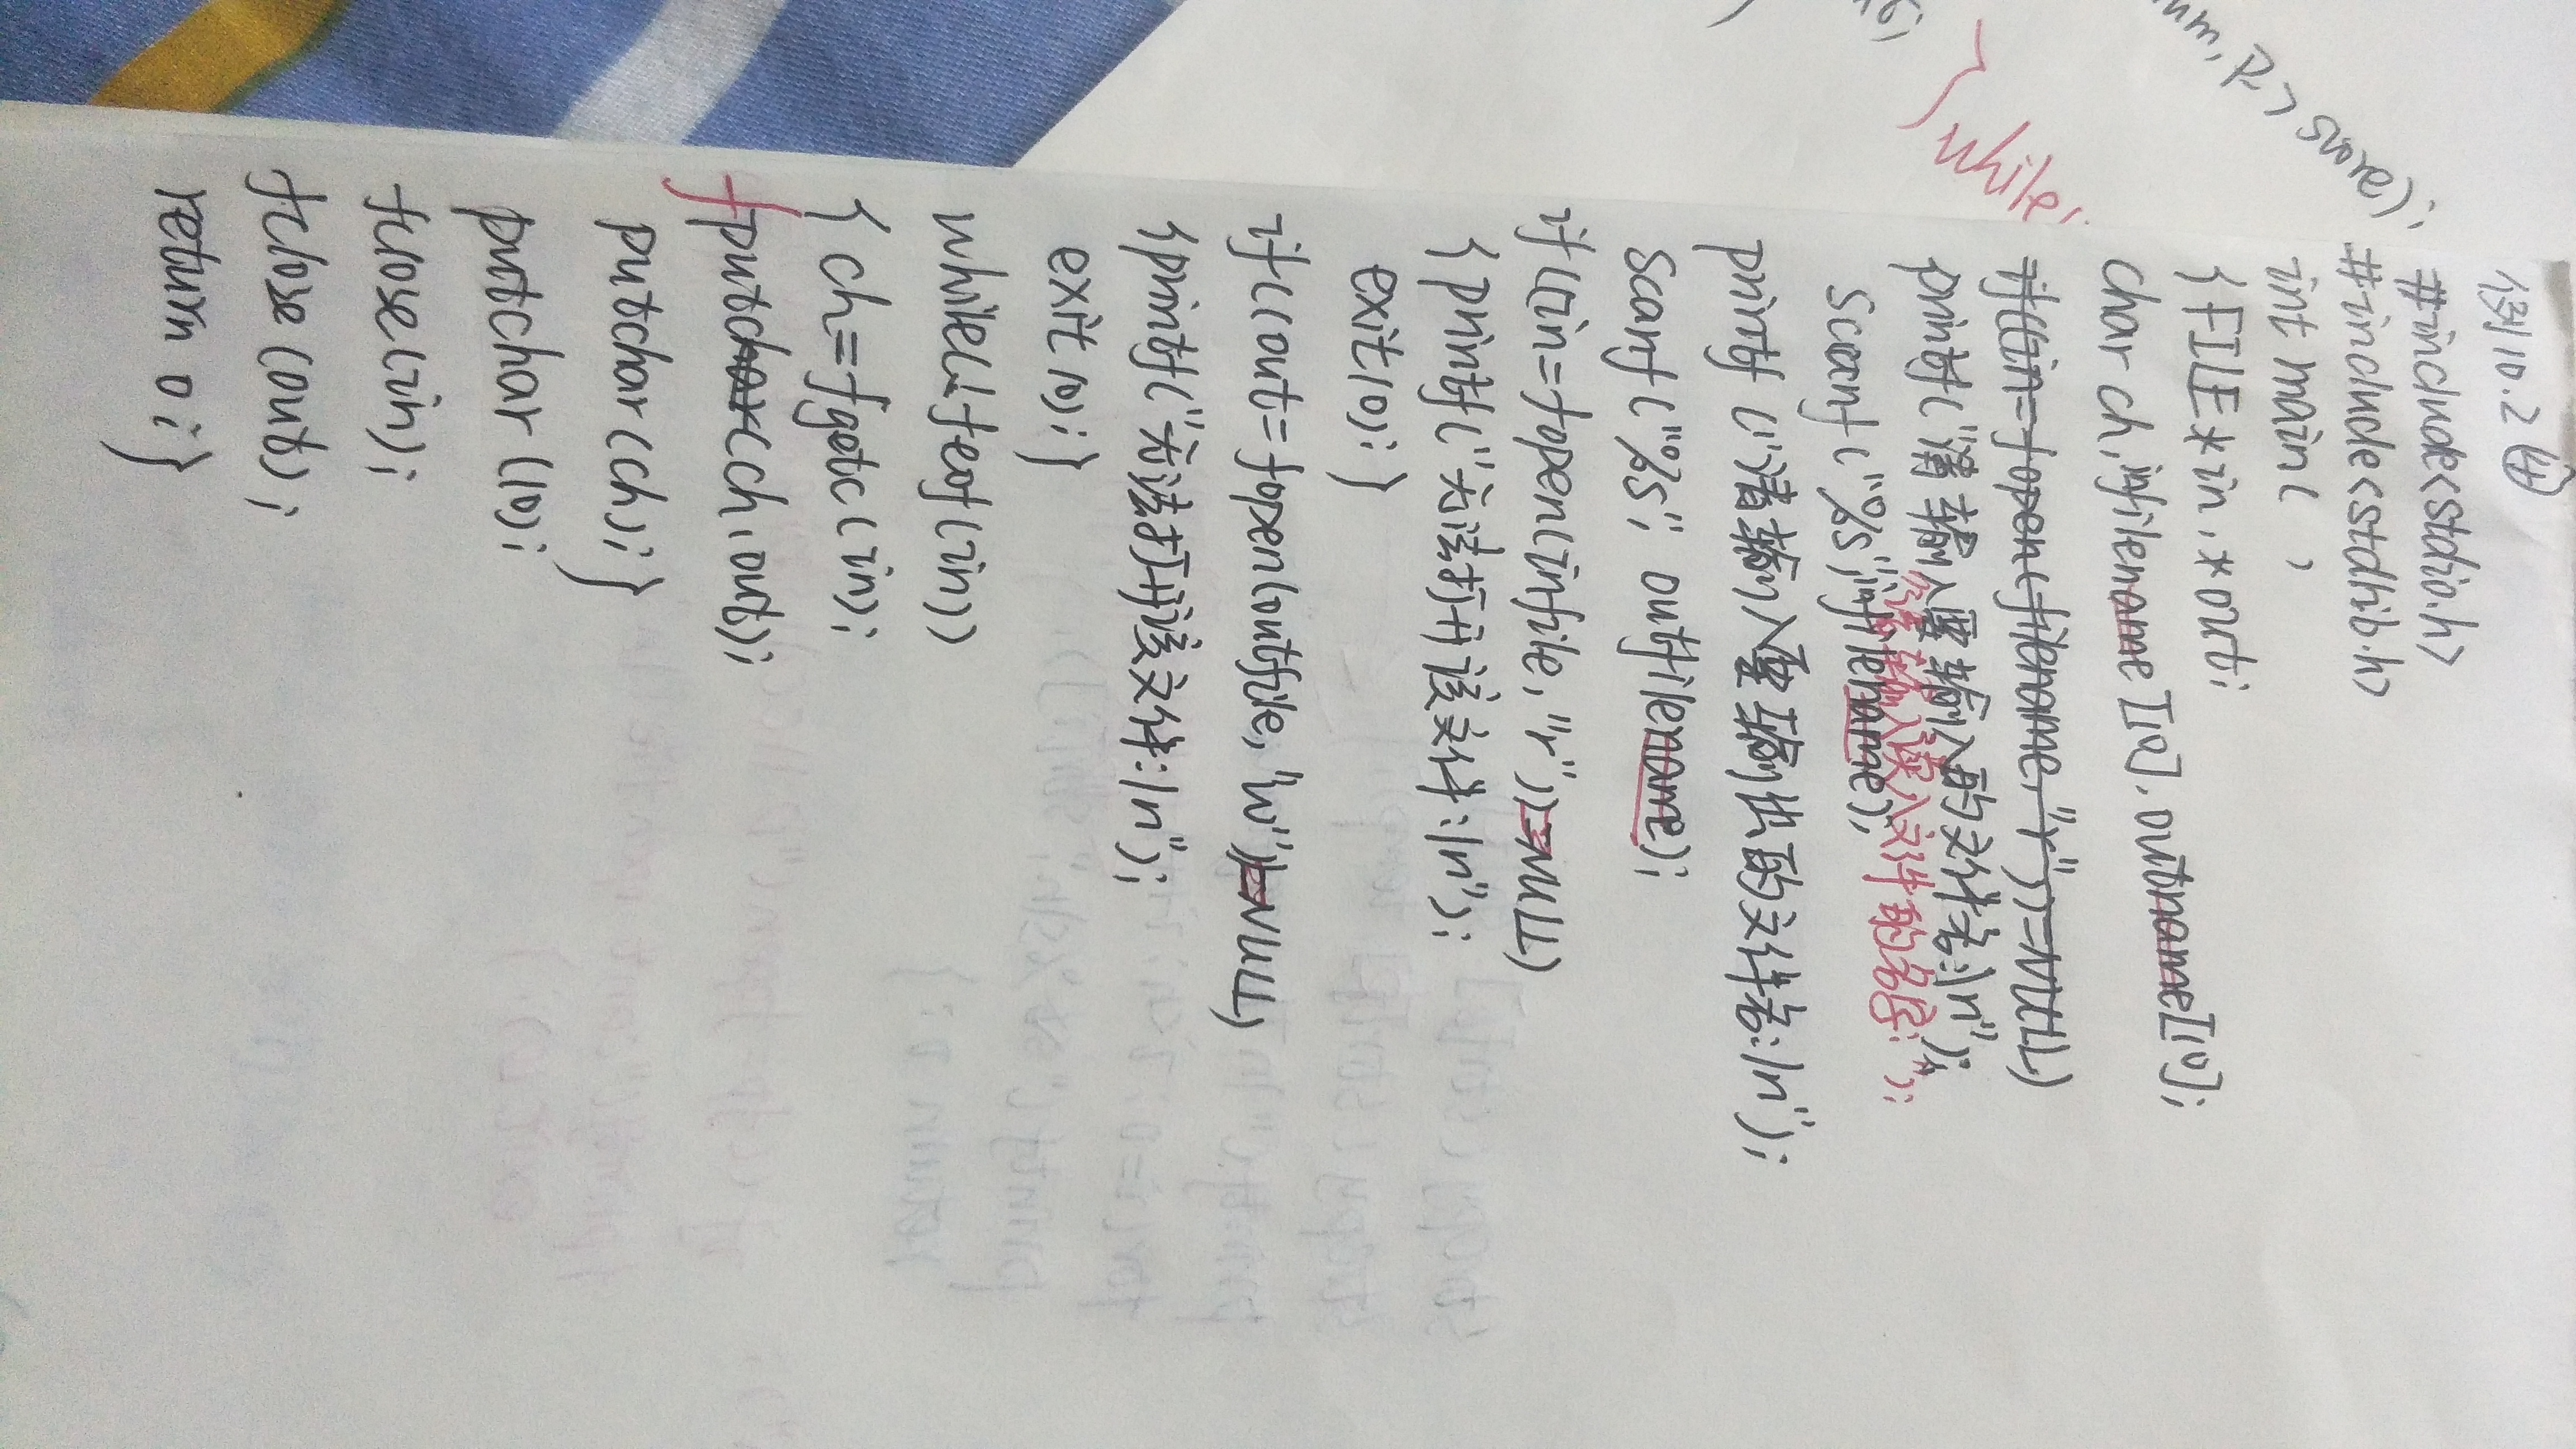 例10.2 ④
#include<stdio.h>
#include<stdlib.h>
int main( )
{FILE *in,*out;
char ch,infilename[10],outname[10];
if((in=fopen(filename,"r"))=NULL)
printf("请输入要输入的文件名:\n");
请输入读入文件的名字:");
Scanf("%s",infilename);
printf("请输入要输出的文件名:\n");
Scanf("%s", outfilename);
if((in=fopen(infile,"r"))=NULL)
{printf("无法打开该文件:\n");
exit(0);}
if((out=fopen(outfile,"w"))=NULL)
{printf("无法打开该文件:\n");
exit(0);}
while(!feof(in))
{ch=fgetc(in);
fputchar(ch,out);
putchar(ch);}
putchar(10);
fclose(in);
fclose(out);
return 0;}
um, p->score);
} while